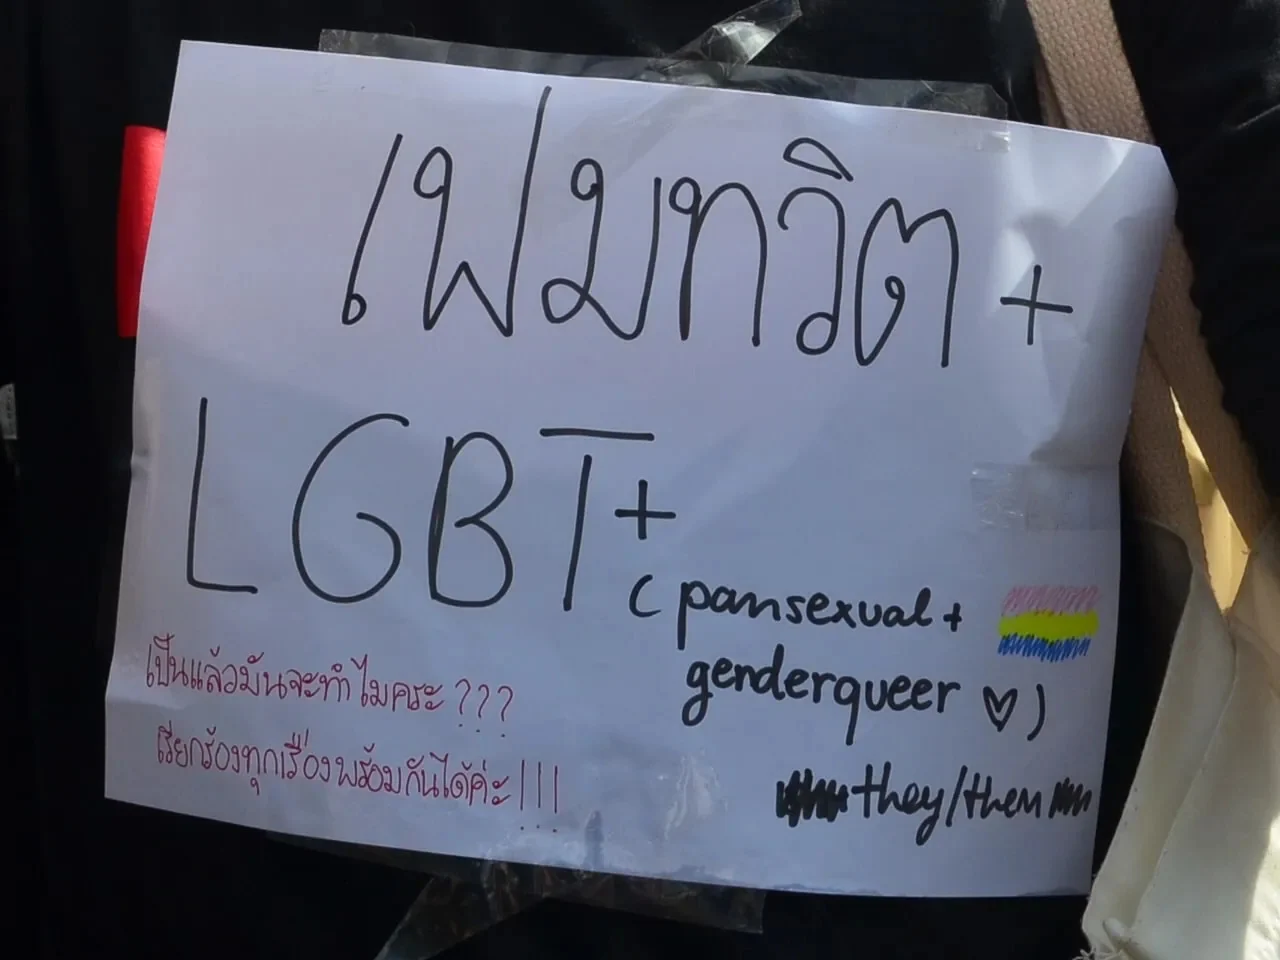 เฟมทวิต +
LGBT+
( pansexual +
genderqueer ♡ )
they/them
เป็นแล้วมันจะทำไมคระ ???
เรียกร้องทุกเรื่องพร้อมกันได้ค่ะ !!!